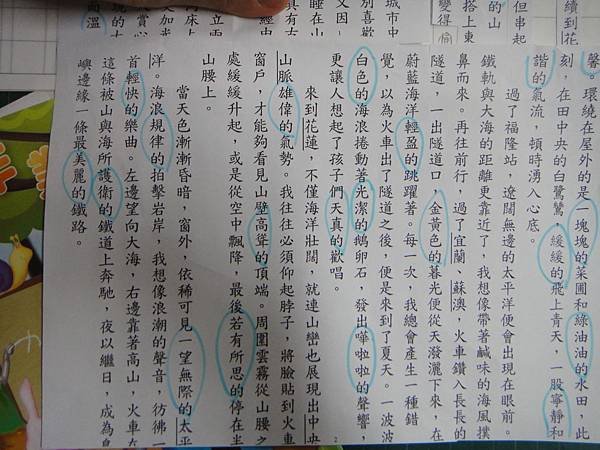 續到花
但串起
的山
搭上東
變得愉
城市中
別喜歡
又因
睡在山
。環繞在屋外的是一塊塊的菜圃和綠油油的水田，此
刻，在田中央的白鷺鷥，緩緩的飛上青天，一股寧靜和
諧的氣流，頓時湧入心底。
過了福隆站，遼闊無邊的太平洋便會出現在眼前。
鐵軌與大海的距離更靠近了，我想像帶著鹹味的海風撲
鼻而來。再往前行，過了宜蘭、蘇澳，火車鑽入長長的
隧道，一出隧道口，金黃色的暮光便從天潑灑下來，在
蔚藍海洋輕盈的跳躍著。每一次，我總會產生一種錯
覺，以為火車出了隧道之後，便是來到了夏天。一波波
白色的海浪捲動著光潔的鵝卵石，發出嘩啦啦的聲響，
更讓人想起了孩子們天真的歡唱。
來到花蓮，不僅海洋壯闊，就連山巒也展現出中央
山脈雄偉的氣勢。我往往必須仰起脖子，將臉貼到火車
窗戶，才能夠看見山壁高聳的頂端。周圍雲霧從山腰之
處緩緩升起，或是從空中飄降，最後若有所思的停在半
山腰上。
當天色漸漸昏暗，窗外，依稀可見一望無際的太平
洋。海浪規律的拍擊岸岸，我想像浪潮的聲音，彷彿一
首輕快的樂曲。左邊望向大海，右邊靠著高山，火車在
這條被山與海所護衛的鐵道上奔馳，夜以繼日，成為島
嶼邊緣一條最美麗的鐵路。